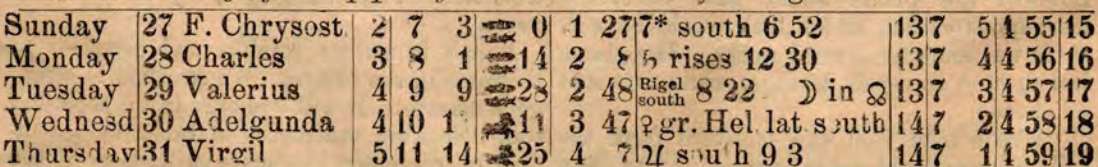 Sunday 27 F. Chrysost 2 7 3 0 1 27 7* south 6 52 13 7 5 4 55 15
Monday 28 Charles 3 8 1 14 2 8 ♄ rises 12 30 13 7 4 4 56 16
Tuesday 29 Valerius 4 9 9 28 2 48 Rigel south 8 22 ☽ in ☊ 13 7 3 4 57 17
Wednesd 30 Adelgunda 4 10 1 11 3 47 ♀ gr. Hel. lat south 14 7 2 4 58 18
Thursday 31 Virgil 5 11 14 25 4 7 ♃ south 9 3 14 7 1 4 59 19